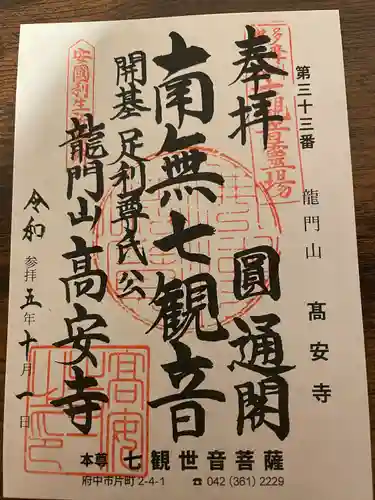 第三十三番
龍門山 髙安寺
奉拝
圓通閣
南無七観音
開基 足利尊氏公
龍門山 髙安寺
令和
参拝 五年十月一日
観音霊場
安國利生
本尊 七観世音菩薩
府中市片町2-4-1 ☎042(361)2229